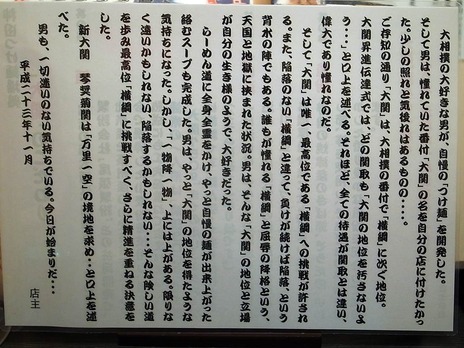 大相撲の大好きな男が、自慢の「つけ麺」を開発した。
そして男は、憧れていた番付「大関」の名を自分の店に付けたかっ
た。少しの照れと気後れはあるものの・・・・。
ご存知の通り「大関」は、大相撲の番付で「横綱」に次ぐ地位。
大関昇進伝達式では、どの関取も「大関の地位を汚さないよ
う・・・」と口上を述べる。それほど、全ての待遇が関取とは違い、
偉大であり憧れなのだ。
そして「大関」は唯一、最高位である「横綱」への挑戦が許され
る。また、陥落のない「横綱」と違って、負けが続けば陥落、という
背水の陣でもある。誰もが憧れる「横綱」と屈辱の降格という、
天国と地獄に挟まれた状況。男は、そんな「大関」の地位と立場
が自分の生き様のようで、大好きだった。
らーめん道に全身全霊をかけ、やっと自慢の麺が出来上がった。
絡むスープも完成した。男は、やっと「大関」の地位を得たような
気持ちになった。しかし、「一物降一物」、上には上がある。限りな
く遠いかもしれない、陥落するかもしれない・・・そんな険しい道
を歩み最高位「横綱」に挑戦すべく、さらに精進を重ねる決意を
新大関 琴奨菊関は、「万里一空」の境地を求め・・と口上を述
べた。
男も、一切迷いのない気持ちでいる。今日が始まりだ・・・
平成二十三年十一月
店主